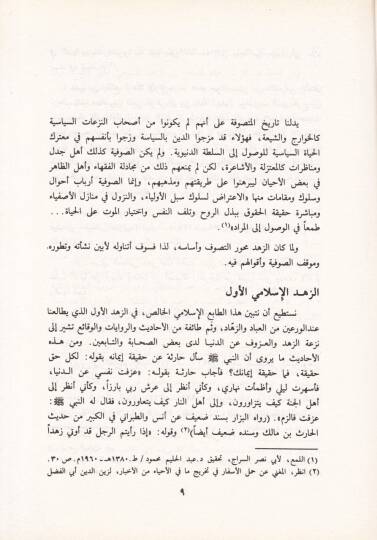 يدلنا تاريخ المتصوفة على أنهم لم يكونوا من أصحاب النزعات السياسية
كالخوارج والشيعة، فهؤلاء قد مزجوا الدين بالسياسة وزجوا بأنفسهم في معترك
الحياة السياسية للوصول إلى السلطة الدنيوية. ولم يكن الصوفية كذلك أهل جدل
ومناظرات كالمعتزلة والأشاعرة، لكن لم يمنعهم ذلك من مجادلة الفقهاء وأهل الظاهر
في بعض الأحيان ليبرهنوا على طريقتهم ومذهبهم، وإنما الصوفية أرباب أحوال
وسلوك ومقامات منها «الاعتراض لسلوك سبل الأولياء، والنزول في منازل الأصفياء
ومباشرة حقيقة الحقوق ببذل الروح وتلف النفس واختيار الموت على الحياة...
طمعاً في الوصول إلى المراد»(١).
ولما كان الزهد محور التصوف وأساسه، لذا فسوف أتناوله لأبين نشأته وتطوره،
وموقف الصوفية وأقوالهم فيه.
الزهد الإسلامي الأول
نستطيع أن نتبين هذا الطابع الإسلامي الخالص، في الزهد الأول الذي يطالعنا
عند الورعين من العباد والزهّاد، وثَم طائفة من الأحاديث والروايات والوقائع تشير إلى
نزعة الزهد والعزوف عن الدنيا لدى بعض الصحابة والتابعين. ومن هذه
الأحاديث ما يروى أن النبي ﷺ سأل حارثة عن حقيقة إيمانه بقوله: لكل حق
حقيقة، فما حقيقة إيمانك؟ فأجاب حارثة بقوله: «عزفت نفسي عن الدنيا،
فأسهرت ليلي وأظمأت نهاري، وكأني أنظر إلى عرش ربي بارزاً، وكأني أنظر إلى
أهل الجنة كيف يتزاورون، وإلى أهل النار كيف يتعاوون، فقال له النبي ﷺ:
عرفت فالزم». (رواه البزار بسند ضعيف عن أنس والطبراني في الكبير من حديث
الحارث بن مالك وسنده ضعيف أيضاً)(٢) وقوله: «إذا رأيتم الرجل قد أوتي زهداً
(١) اللمع، لأبي نصر السراج، تحقيق د.عبد الحليم محمود/ ط. ١٣٨٠هـ - ١٩٦٠م. ص ٣٠.
(٢) انظر، المغني عن حمل الأسفار في تخريج ما في الأحياء من الأخبار، لزين الدين أبي الفضل
٩